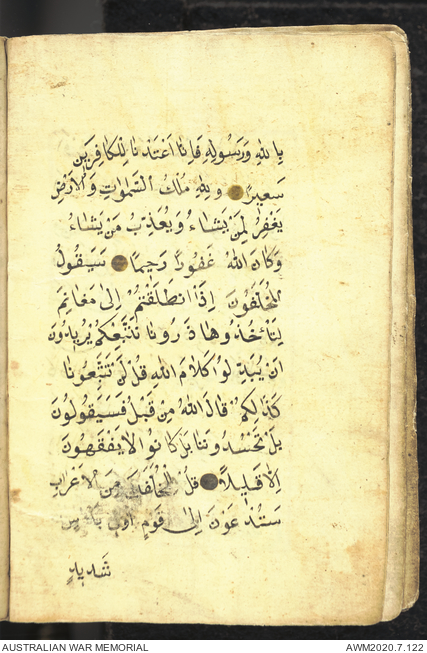 بِاللهِ وَرَسُولِهِ فَاِنَّا اَعْتَدْنَا لِلْكَافِرِينَ
سَعِيرًا وَلِلهِ مُلْكُ السَّمٰوَاتِ وَالْاَرْضِ
يَغْفِرُ لِمَنْ يَشَاءُ وَيُعَذِّبُ مَنْ يَشَاءُ
وَكَانَ اللهُ غَفُورًا رَحِيمًا سَيَقُولُ
الْمُخَلَّفُونَ اِذَا انْطَلَقْتُمْ اِلٰى مَغَانِمَ
لِتَأْخُذُوهَا ذَرُونَا نَتَّبِعْكُمْ يُرِيدُونَ
اَنْ يُبَدِّلُوا كَلَامَ اللهِ قُلْ لَنْ تَتَّبِعُونَا
كَذٰلِكُمْ قَالَ اللهُ مِنْ قَبْلُ فَسَيَقُولُونَ
بَلْ تَحْسُدُونَنَا بَلْ كَانُوا لَا يَفْقَهُونَ
اِلَّا قَلِيلًا قُلْ لِلْمُخَلَّفِينَ مِنَ الْاَعْرَابِ
سَتُدْعَوْنَ اِلٰى قَوْمٍ اُولِى بَأْسٍ
شَدِيدٍ
AUSTRALIAN WAR MEMORIAL AWM2020.7.122